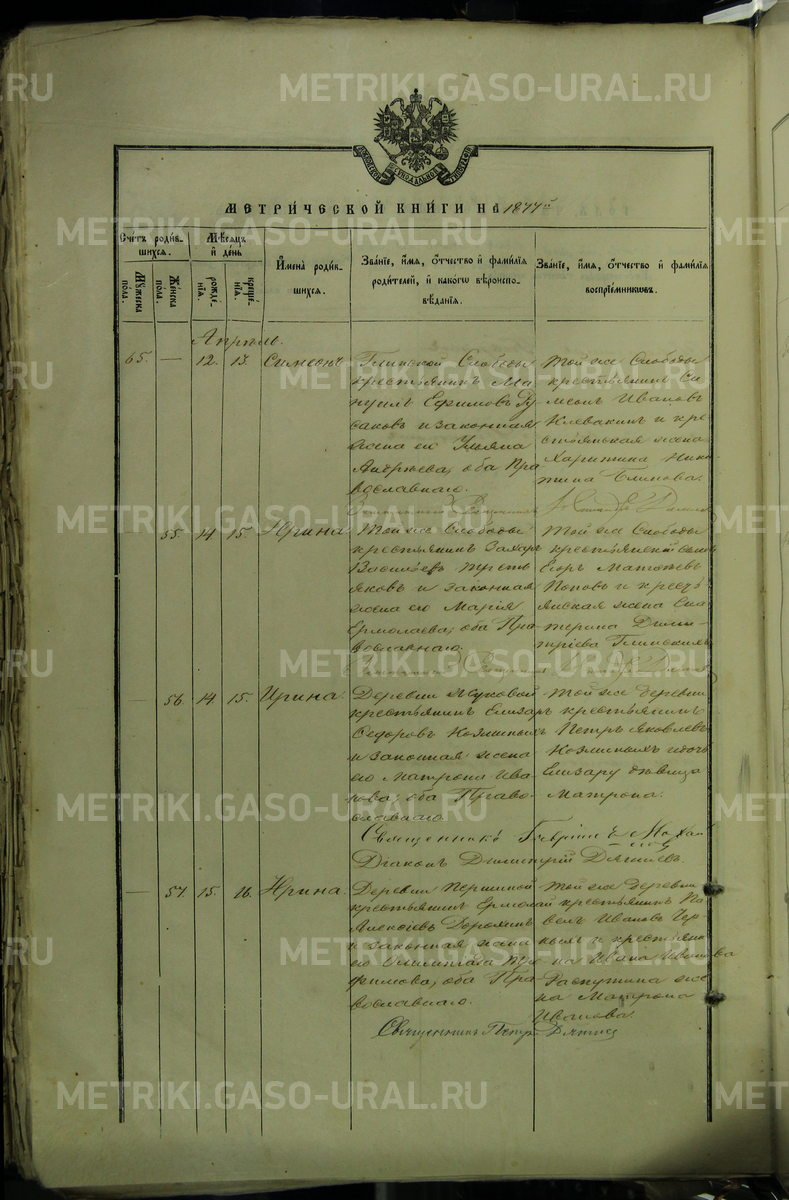 МЕТРИ́ЧЕСКОЙ КНИ́ГИ НА 1877й
Сче́тъ роди́вшихся.
Му́жеска пола.
Же́нска пола.
Мѣ́сяцъ и́ де́нь
рожде́нїя.
креще́нїя.
И́мена̀ роди́вшихся.
Зва́нїе, и́мя, о́тчество и́ фами́лїя
роди́телей, и́ како́гѡ вѣ̀роисповѣ́данїя.
Зва́нїе, и́мя, о́тчество и́ фами́лїя
воспрїе́мникѡвъ.
Апрѣль.
65. — 12. 13. Симеонъ
Глинской Слободы
крестьянинъ Ма
нуилъ Ефимовъ Ру
саковъ и законная
жена его Ульяна
Андреева, оба Пра
вославнаго.
Той же Слободы
крестьянинъ Си
меонъ Ивановъ
Клевакинъ и кре
стьянская жена
Харитина Ники
тина Блинова.
55. 14. 15. Ирина
Той же Слободы
крестьянинъ Захаръ
Васильевъ Треть
яковъ и законная
жена его Марія
Ермолаева, оба Пра
вославнаго.
Той же Слободы
крестьянскій сынъ
Егоръ Матвѣевъ
Поповъ и кресть
янская жена Ека
терина Дими
тріева Глинскихъ
— 56. 14. 15. Ирина.
Деревни
крестьянинъ Елизаръ
Федоровъ Козминыхъ
и законная жена
его Матрона Ива
нова; оба Право
славнаго
Той же деревни
крестьянинъ
Петръ Яковлевъ
Козминыхъ и дочь
Елизару дѣвица
Матрона.
Священникъ Гавріилъ
Діаконъ Димитрій Дягилевъ.
— 57. 15. 16. Ирина.
Деревни Першиной
крестьянинъ Ермолай
Алексѣевъ
и законная жена
его Олимпіада
фимова, оба Пра
вославнаго.
Той же деревни
крестьянинъ Па
велъ Ивановъ
и крестьяни
на Ивана Иванова
Распутина же
на Матрона
Иванова.
Священникъ Петръ
METRIKI.GASO-URAL.RU